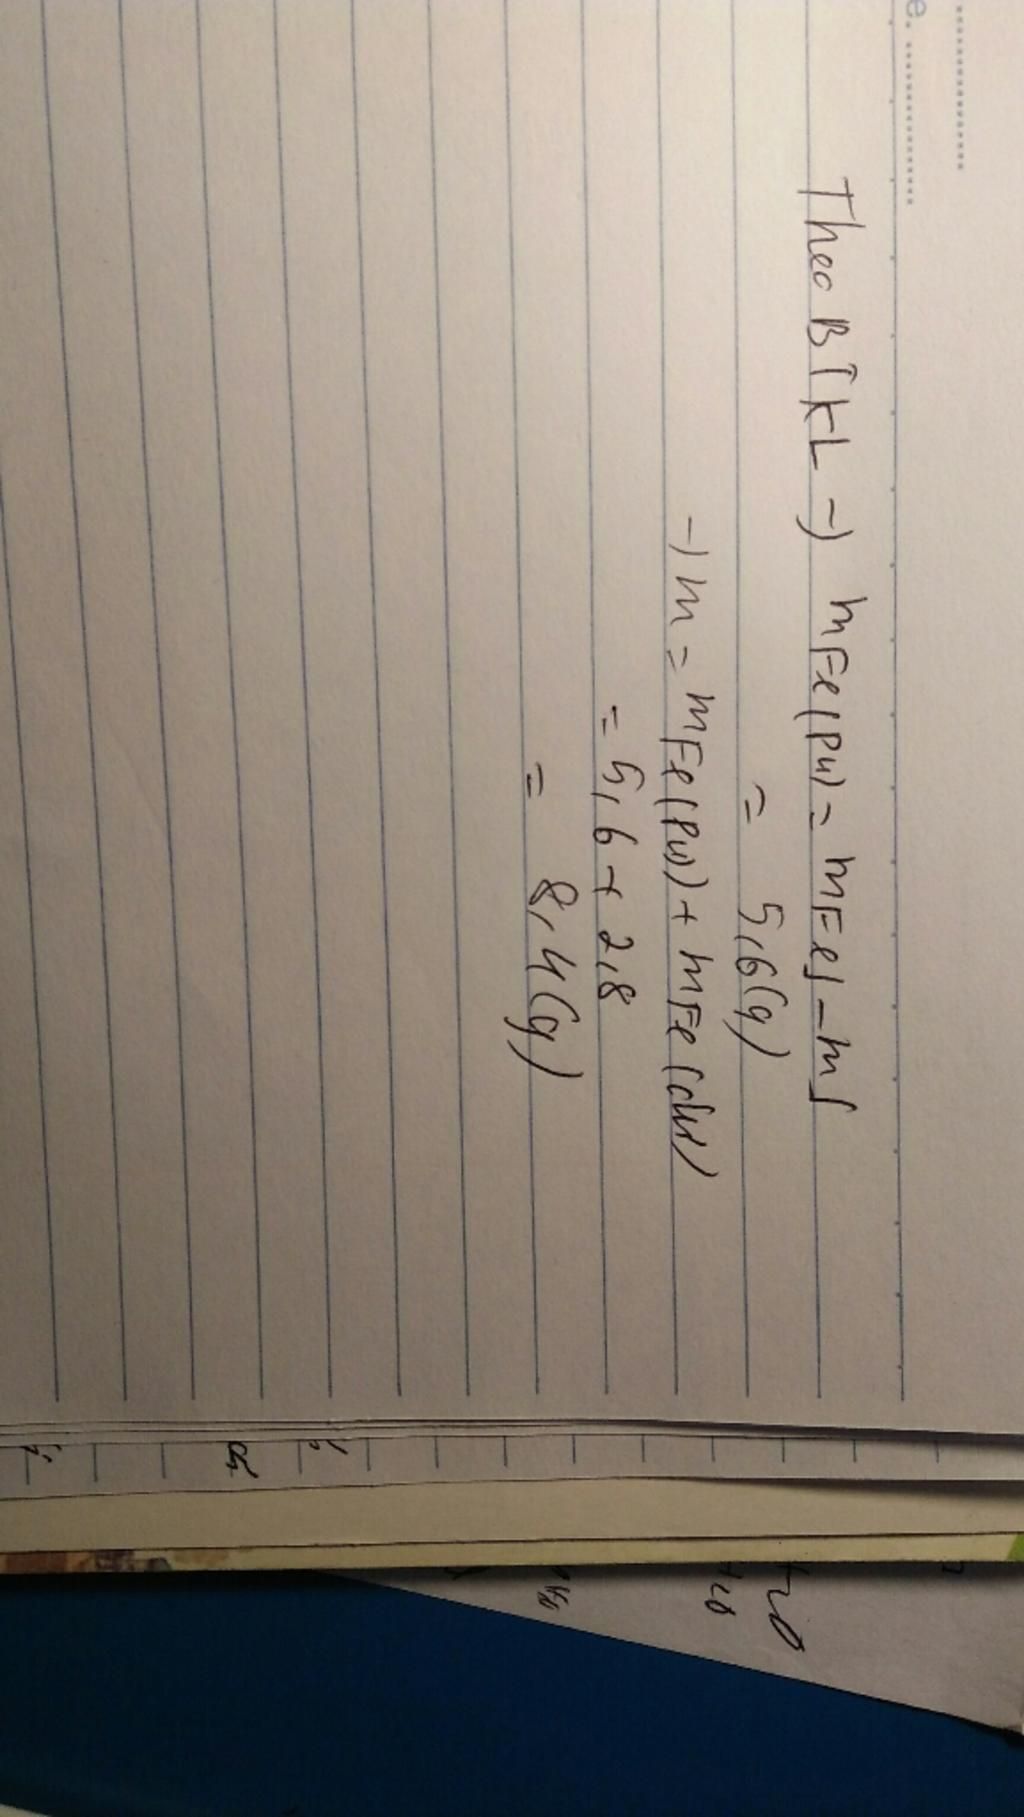 Theo BTKL -) mFe(pu) = mFeS - mS
= 5,6(g)
-) m = mFe(pu) + mFe (dư)
= 5,6 + 2,8
= 8,4(g)